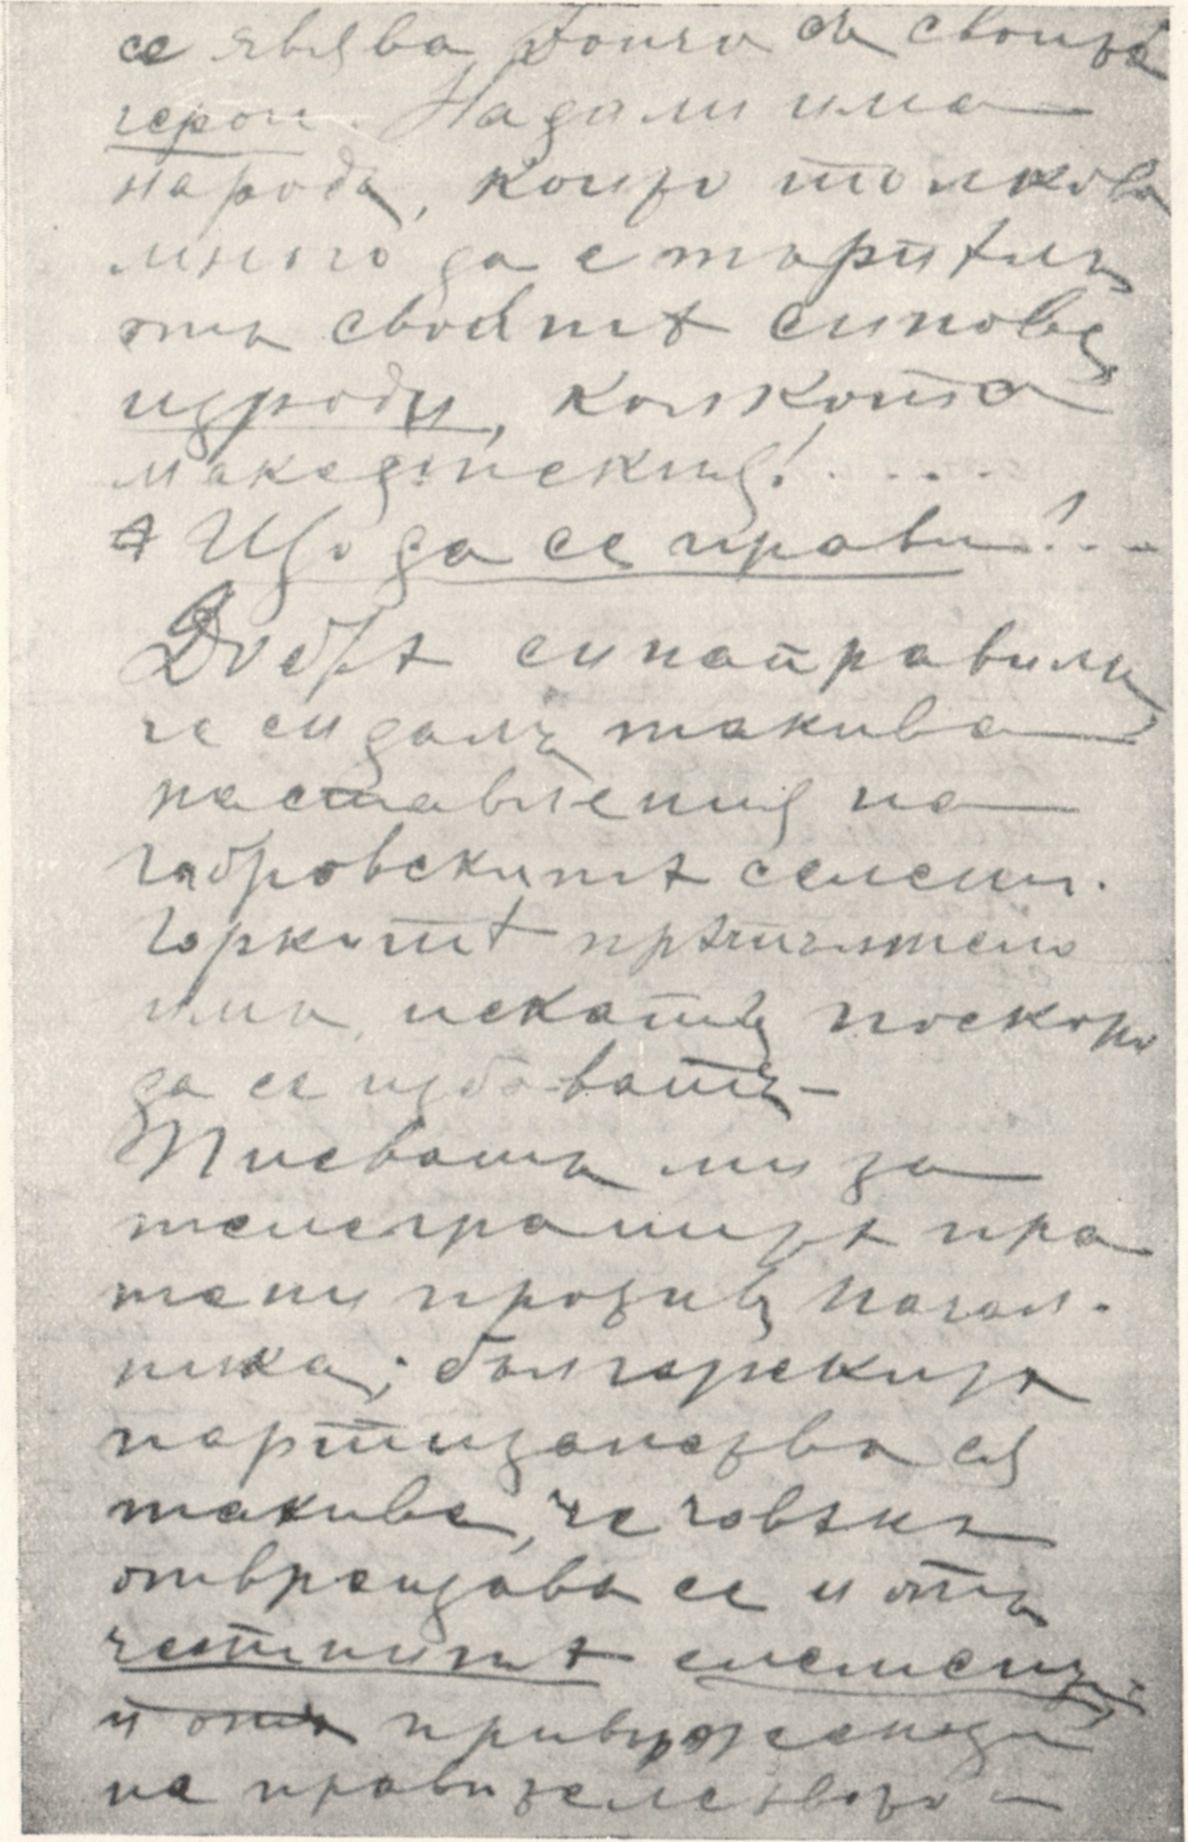 се явява Дончо съ своитѣ
герои. Надали има
народъ, който толкова
много да е търпѣлъ
отъ своитѣ синове
изроди, колкото
македонския! . . . .
Що да се прави! . . -
Добрѣ си направилъ
че си далъ такива
наставления на
габровскитѣ селени.
Горкитѣ
искатъ поскоро
да се избаватъ —
Писвашъ ми за
телеграмитѣ пра
тени противъ Начал-
ника; българскитѣ
партизанства сѫ
такива, че човѣкъ
отвращава се и отъ
честнитѣ елементи
и отъ привърженици
на правителството —